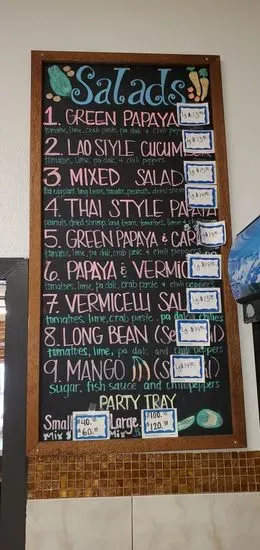 Salads
1. GREEN PAPAYA
tomatoe, lime, crab paste, pa dak + chili peppers
2. LAO STYLE CUCUMBER
tomatoes, lime, pa dak + chili peppers
3 MIXED SALAD
thai eggplant, long beans, tomatoes, peanuts, dried shrimp
4. THAI STYLE PAPAYA
peanuts, dried shrimp, long beans, tomatoes, lime
5. GREEN PAPAYA &
tomatoe, lime, pa dak, crab paste + chili peppers
6. PAPAYA & VERMIC
tomatoes, lime, pa dak, crab paste + chili peppers
7. VERMICELLI SAL
tomatoes, lime, crab paste, pa dak + chilies
8. LONG BEAN
tomatoes, lime, pa dak, and chili peppers
9. MANGO
sugar, fish sauce and chili peppers
PARTY TRAY
Small 40. Large 100.
Mix 60. Mix 120.